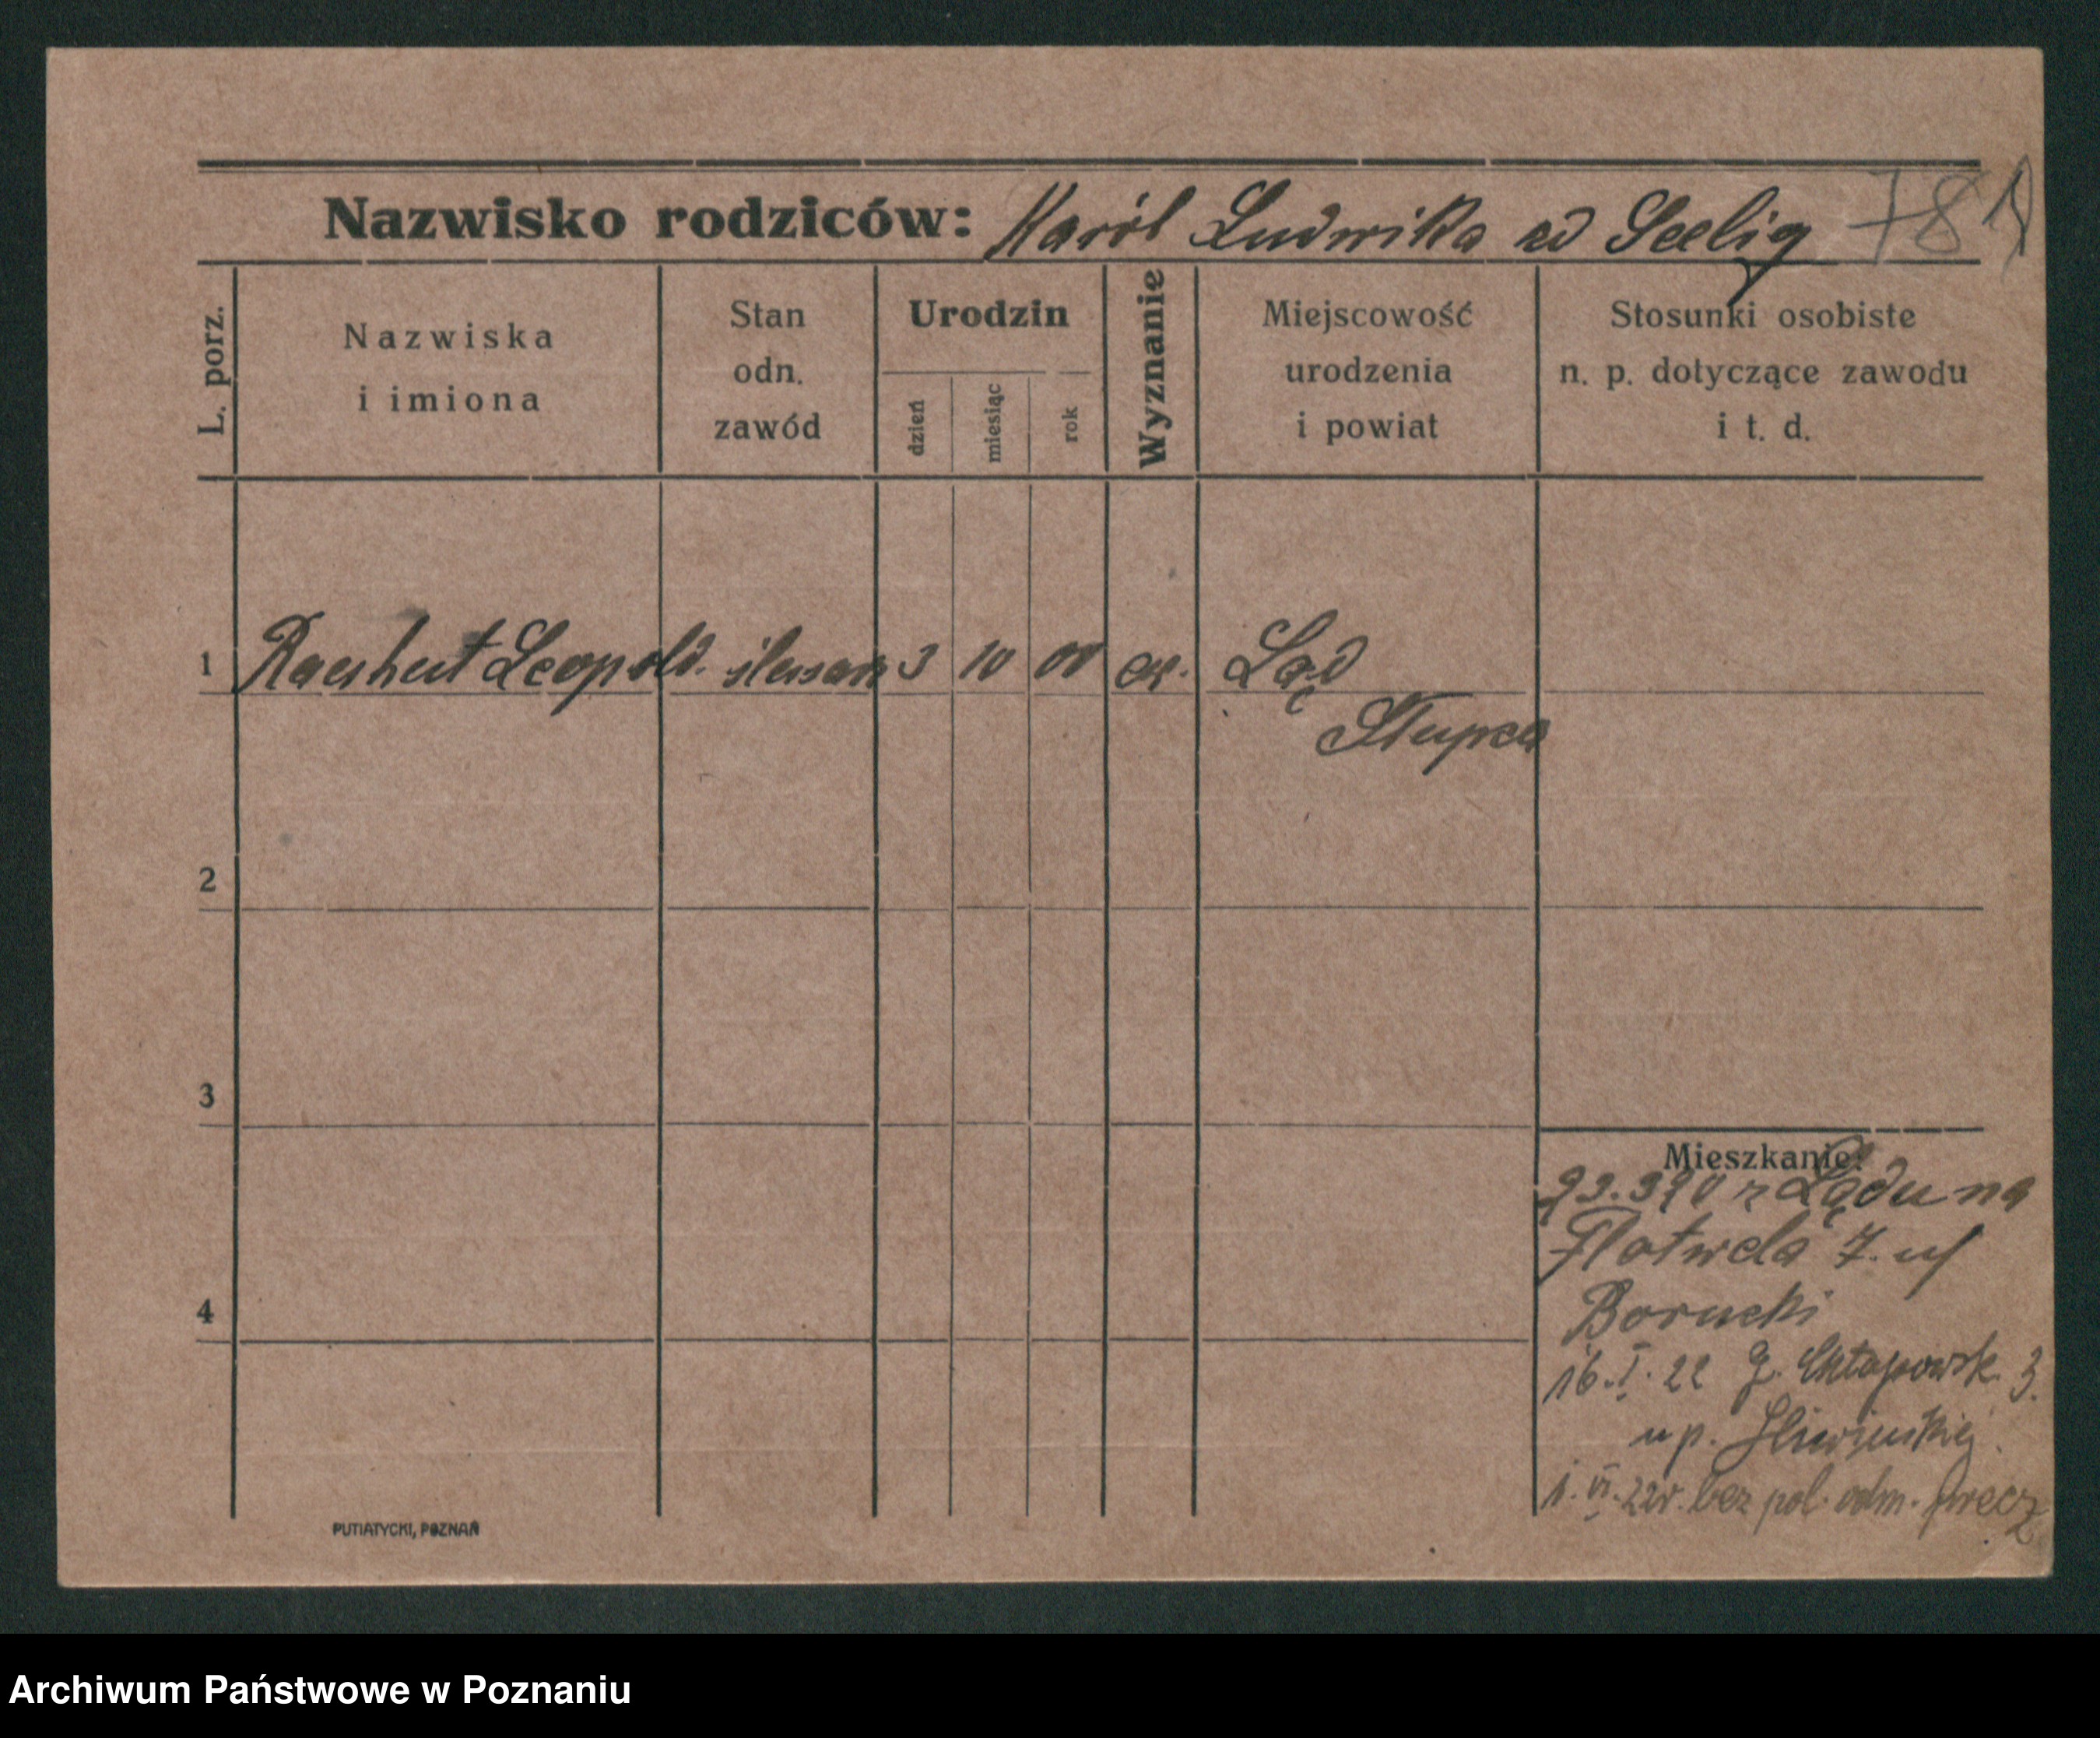 Nazwisko rodziców: Karól Ludwika zd Seelig 781
L. porz.
Nazwiska
i imiona
Stan
odn.
zawód
Urodzin
dzień
miesiąc
rok
Wyznanie
Miejscowość
urodzenia
i powiat
Stosunki osobiste
n. p. dotyczące zawodu
i t. d.
1 Leopold. ślusarz 3 10 00 ew. Ląd
Słupca
2
3
4
Mieszkanie:
z Lądu na
Flotwela 7. u/
Borucki
16.I.22 G. Chłapowsk. 3.
u p. Śliwińskiej.
1.VI.22r. bez pol. odm. precz
PUTIATYCKI, POZNAŃ
Archiwum Państwowe w Poznaniu